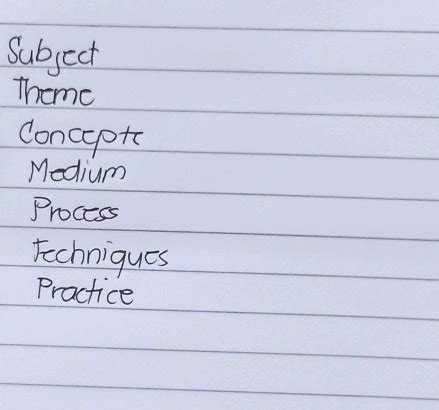 Subject
Theme
Concepts
Medium
Process
Techniques
Practice